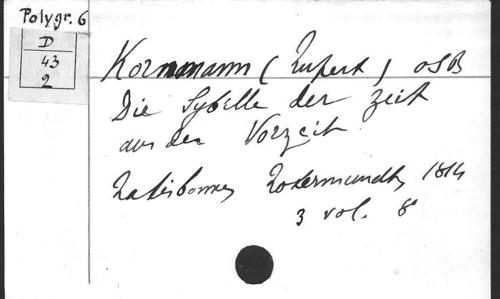 Polygr. 6
D
43
2
Kornmann (Rupert) OSB
Die Sybille der Zeit
aus der Vorzeit
Ratisbonne, Rotermundt, 1814
3 vol. 8°